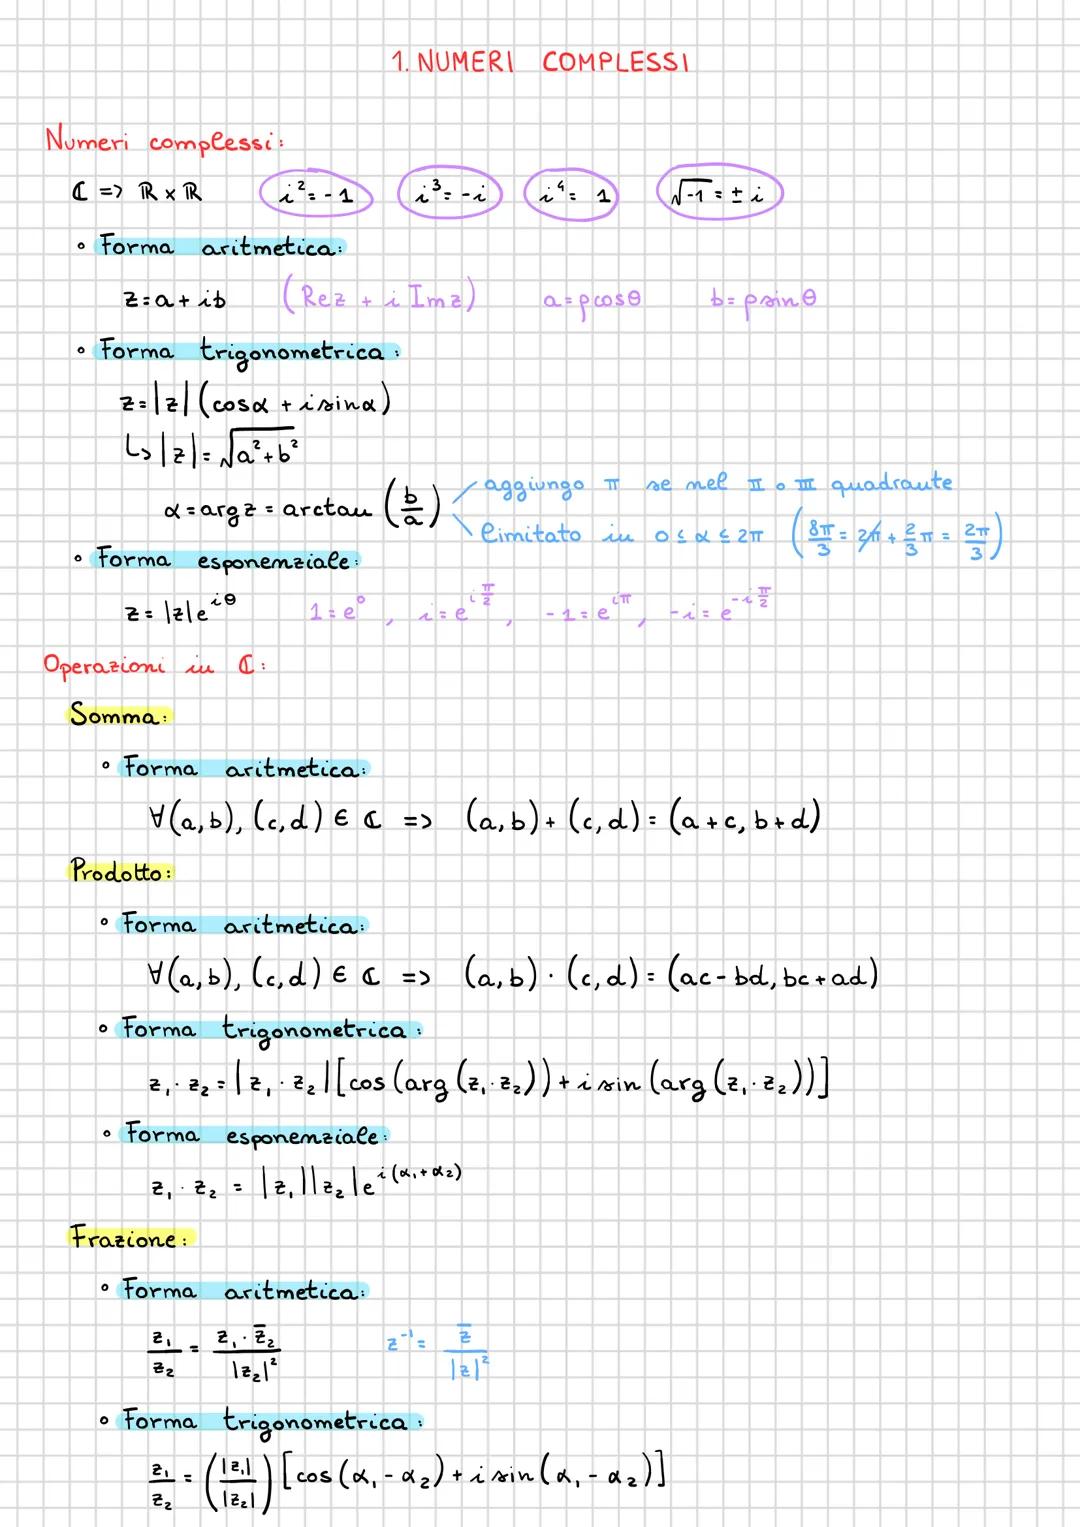 1. NUMERI COMPLESSI
Numeri complessi:
ℂ => ℝ x ℝ i² = -1 i³ = -i i⁴ = 1 √-1 = ± i
• Forma aritmetica:
z = a + ib (Re z + i Im z) a = ρcosθ b = ρsinθ
• Forma trigonometrica:
z = |z| (cosα + isinα)
↳ |z| = √a² + b²
α = arg z = arctan (b/a) aggiungo π se nel II o III quadrante
limitato in 0 ≤ α ≤ 2π (8π/3 = 2π + 2/3 π = 2π/3)
• Forma esponenziale:
z = |z|e^iθ 1 = e⁰, i = e^i π/2, -1 = e^iπ, -i = e^-i π/2
Operazioni in ℂ:
Somma:
• Forma aritmetica:
∀(a,b), (c,d) ∈ ℂ => (a,b) + (c,d) = (a+c, b+d)
Prodotto:
• Forma aritmetica:
∀(a,b), (c,d) ∈ ℂ => (a,b) · (c,d) = (ac - bd, bc + ad)
• Forma trigonometrica:
z₁ · z₂ = |z₁ · z₂| [cos (arg (z₁ · z₂)) + i sin (arg (z₁ · z₂))]
• Forma esponenziale:
z₁ · z₂ = |z₁||z₂|e^i(α₁ + α₂)
Frazione:
• Forma aritmetica:
z₁/z₂ = z₁ · z̄₂/|z₂|² z⁻¹ = z̄/|z|²
• Forma trigonometrica:
z₁/z₂ = (|z₁|/|z₂|) [cos (α₁ - α₂) + i sin (α₁ - α₂)]